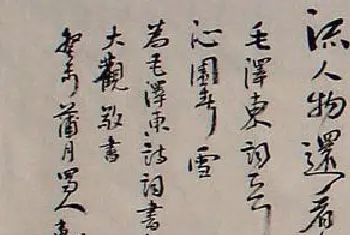 流人物還看
毛澤東詞
沁園春 雪
為毛澤東詩詞書
大觀敬書
癸未蒲月